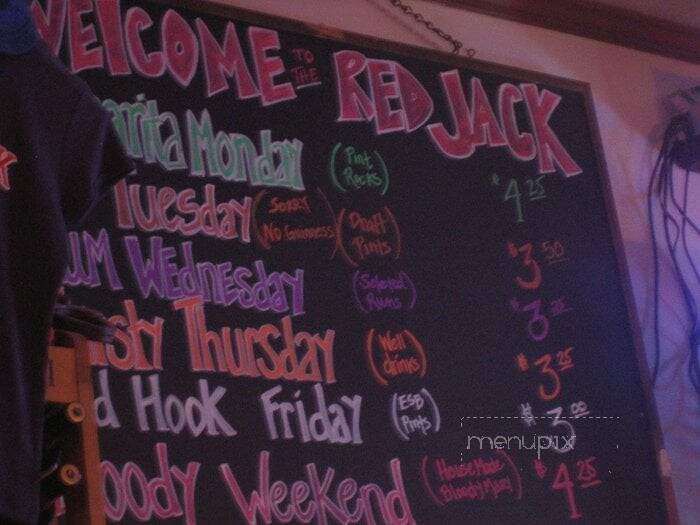 WELCOME TO THE RED JACK
arita Monday (Pint Rocks) $4.25
Tuesday (SORRY NO Guinness) (Draft Pints) $3.50
UM WEDNESDAY (Selected Rums) $3.25
sty Thursday (Well drinks) $3.25
d HOOK FridAY (ESB Pints) $3.00
oody WEEKEND (House Made Bloody Mary) $4.25
menupix